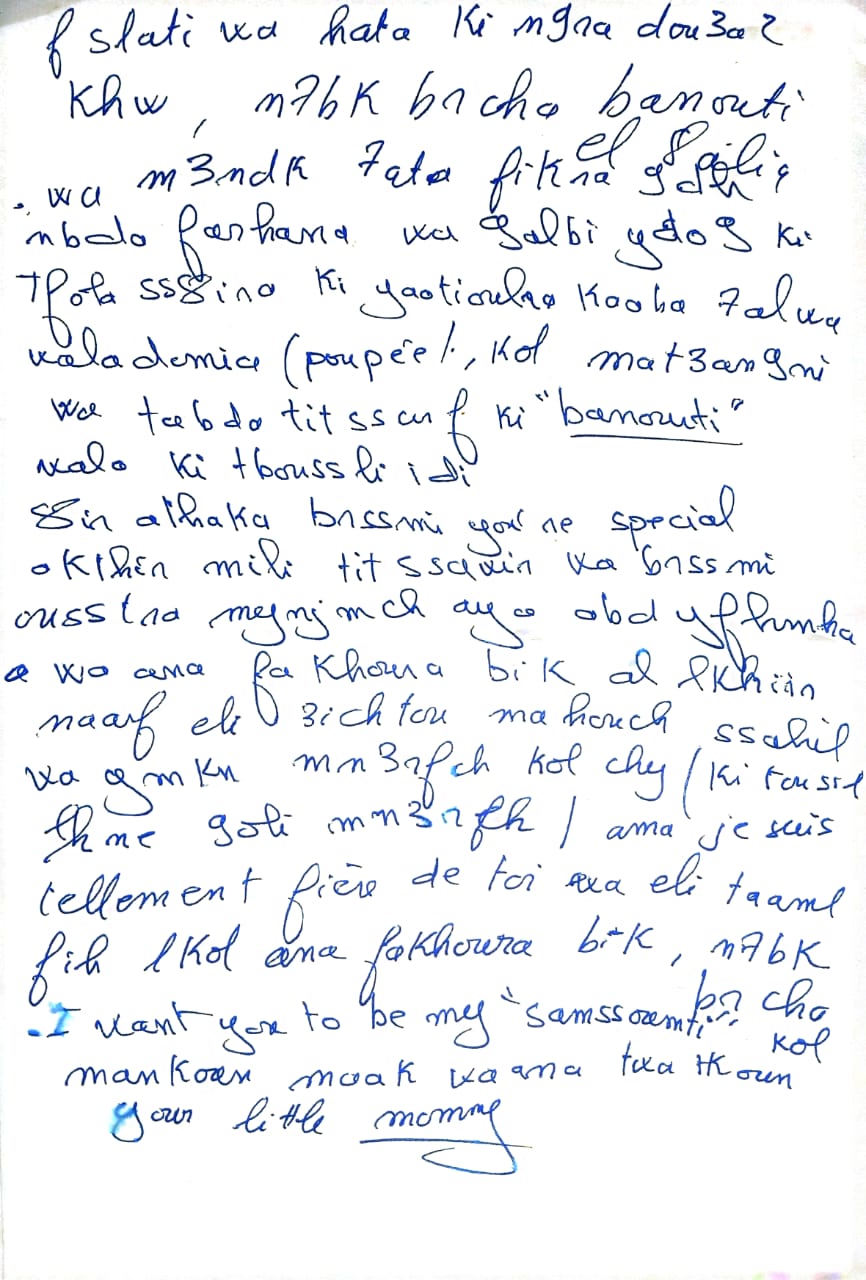 f slati wa hata ki n9ra dou3a2
Khw, n7bk brcha banouti
. wa m3ndk 7ata fikra 9deh el 8alia
nbdo farhana wa galbi ydo9 ki
tfola ss8ira ki yaatioulha kaaba 7alwa
wala demia (poupée), kol mat3an9ni
wa tabda titssarf ki "banouti"
wala ki tboussli idi
8ir alhaka brssmi you're special
okthēr mili titssawir wa brssmi
ousstra meynjmch ay abd yfhmha
wa ana fakhoura bik al lkhiir
naarf eli 3ichtou mahouch ssahil
wa ymkn mn3rfch kol chy (ki toussl
thne goli mn3rfh) ama je suis
tellement fière de toi wa eli taaml
fih lkol ana fakhoura bik, n7bk
brcha
.I want you to be my "samssoumti" kol
mankoun maak wa ana twa tkoun
your little mommy